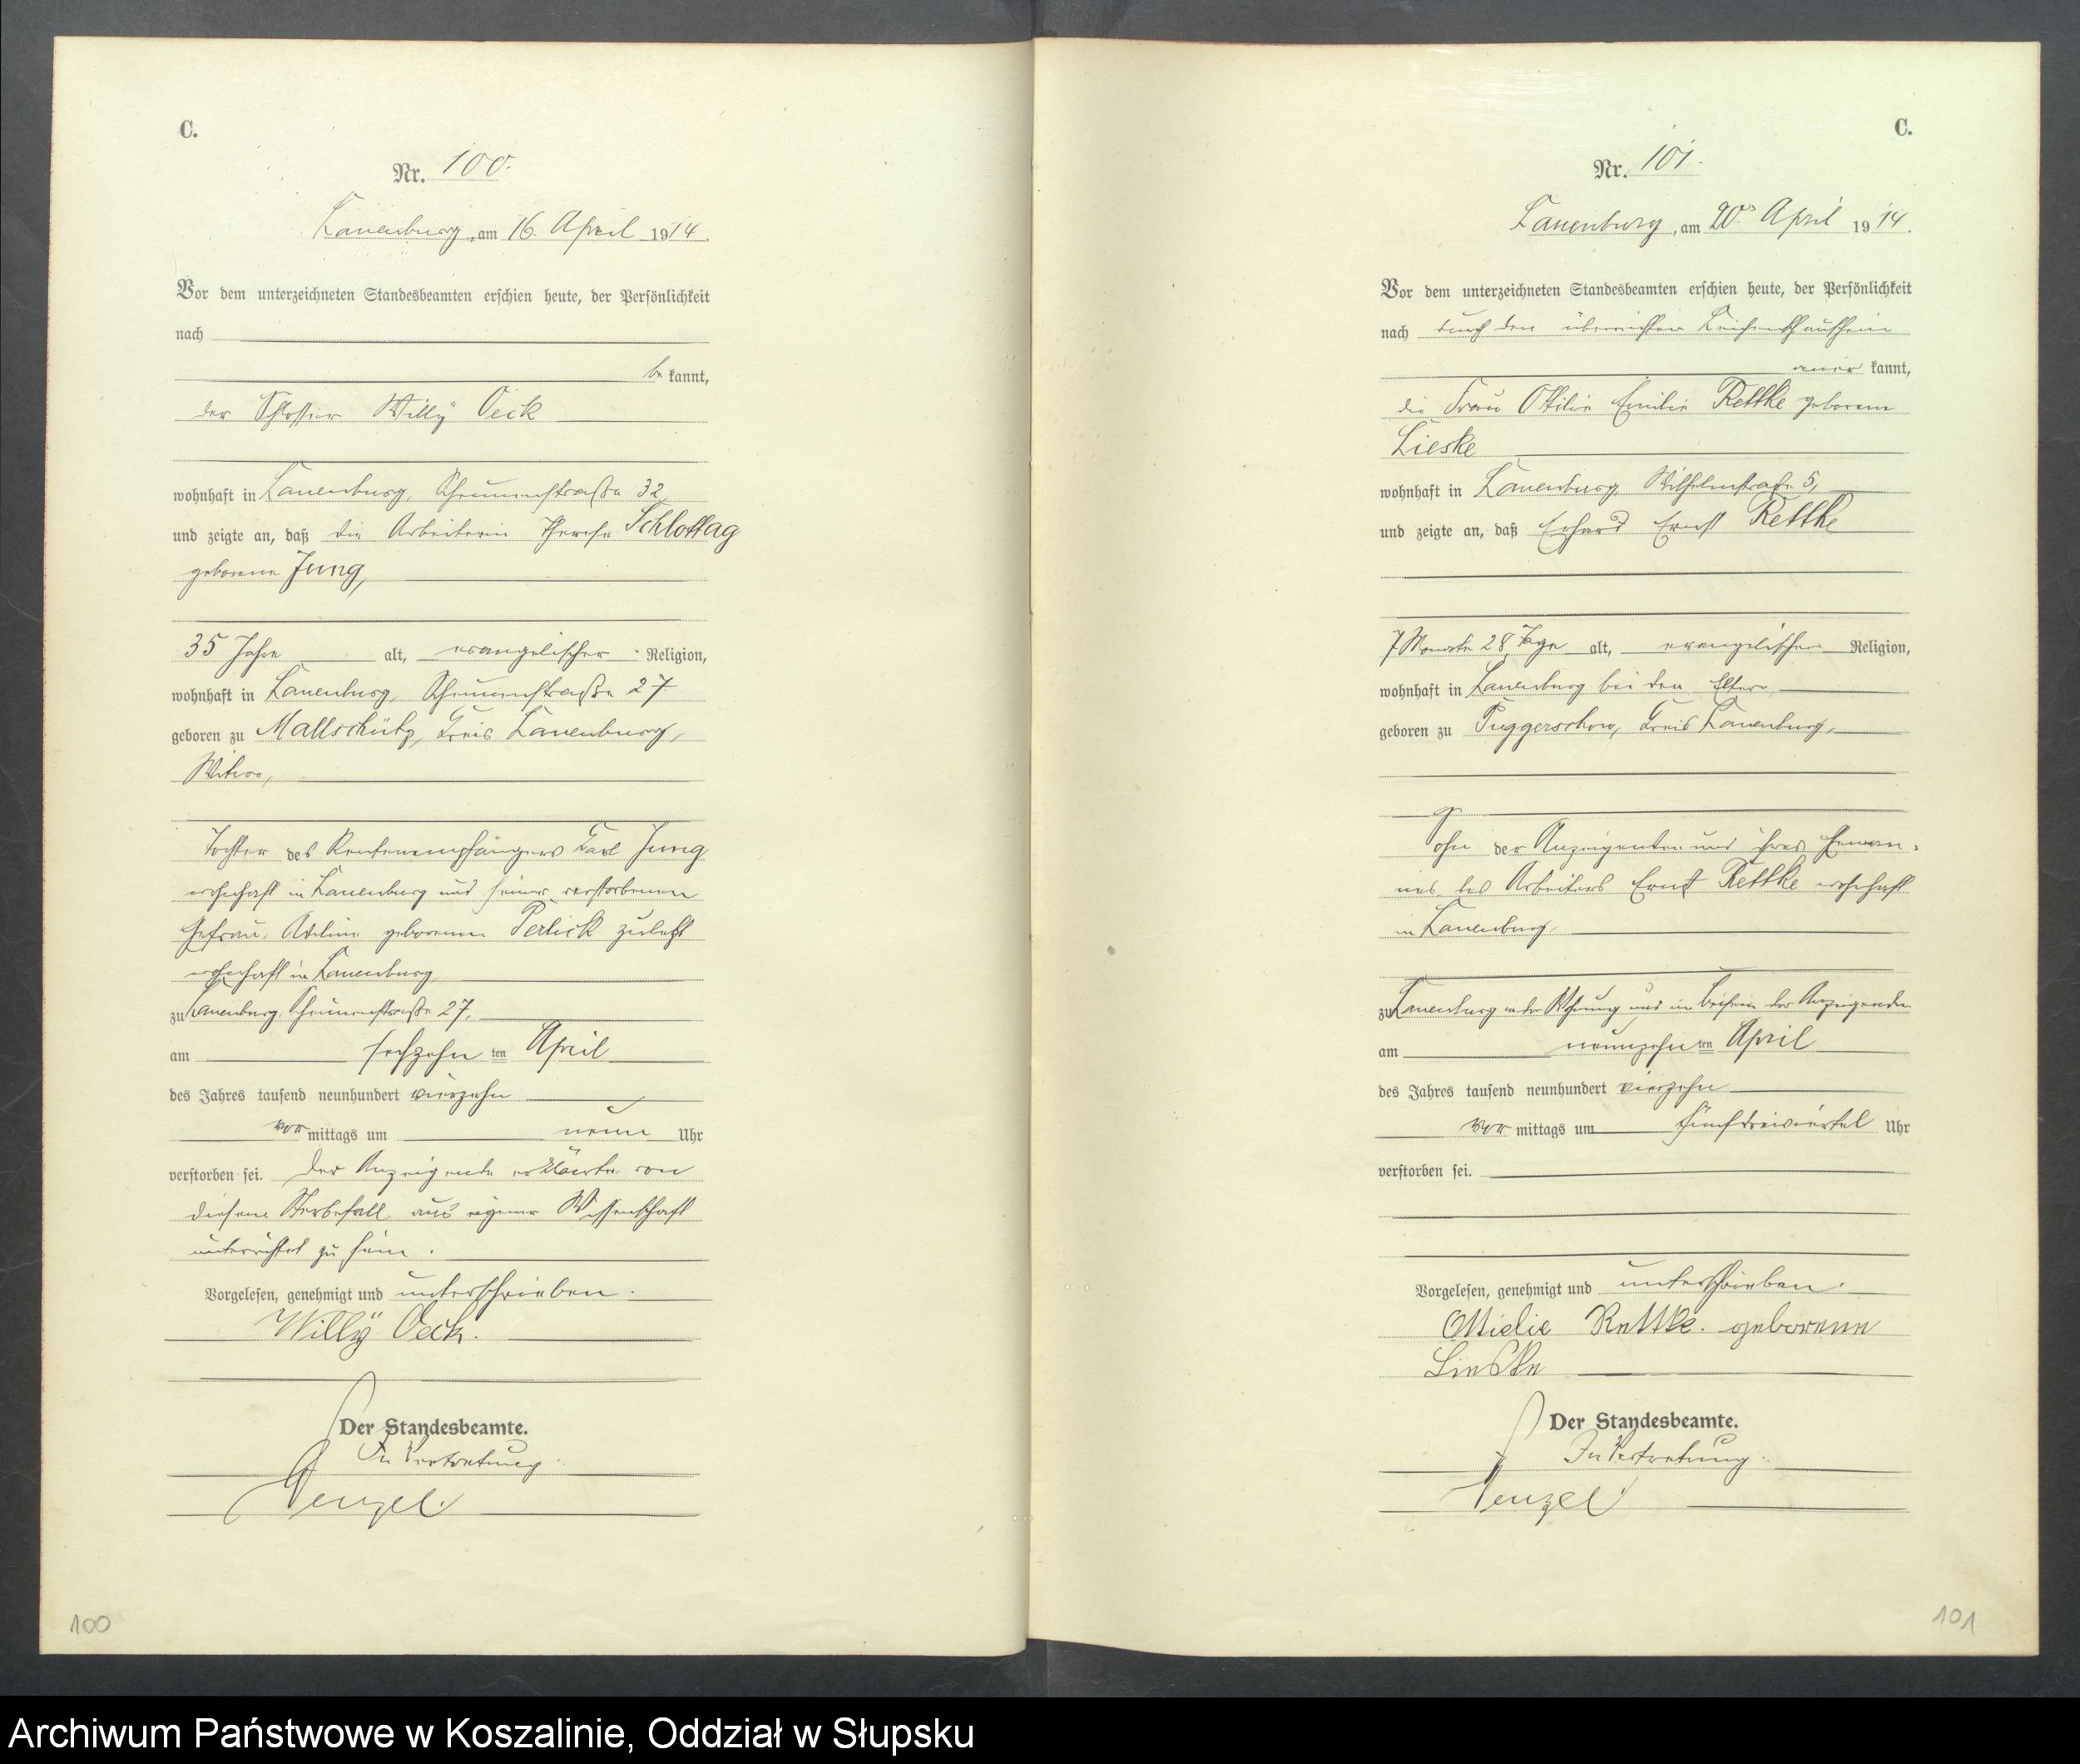 C.
Nr. 100.
Lauenburg, am 16. April 1914.
Vor dem unterzeichneten Standesbeamten erschien heute, der Persönlichkeit
nach
be kannt,
der Schlosser Willÿ Oeck
wohnhaft in Lauenburg, Scheunenstraße 32,
und zeigte an, daß die Arbeiterin Therese Schlottag
geborene Jung,
35 Jahre alt, evangelischer Religion,
wohnhaft in Lauenburg, Scheunenstraße 27
geboren zu Mallschütz, Kreis Lauenburg,
Witwe,
Tochter des Rentenempfängers Karl Jung
wohnhaft in Lauenburg und seiner verstorbenen
Ehefrau, geborenen Perlick zuletzt
wohnhaft in Lauenburg
zu Lauenburg, Scheunenstraße 27,
am sechzehn ten April
des Jahres tausend neunhundert vierzehn
vor mittags um neun Uhr
verstorben sei. Der Anzeigende erklärte von
diesem Sterbefall aus eigener Wissenschaft
unterrichtet zu sein.
Vorgelesen, genehmigt und unterschrieben.
Willÿ Oeck.
Der Standesbeamte.
In Vertretung.
Penzel.
100
C.
Nr. 101.
Lauenburg, am 20. April 1914.
Vor dem unterzeichneten Standesbeamten erschien heute, der Persönlichkeit
nach durch den überreichten Leichenschauschein
aner kannt,
die Frau Ottilie Emilie Rettke geborene
Lieske
wohnhaft in Lauenburg, Wilhelmstraße 5,
und zeigte an, daß Erhard Ernst Rettke
7 Monate 28 Tage alt, evangelischer Religion,
wohnhaft in Lauenburg bei den Eltern,
geboren zu Puggerschow, Kreis Lauenburg,
Sohn der Anzeigenden und ihres Eheman-
nes des Arbeiters Ernst Rettke wohnhaft
in Lauenburg,
zu Lauenburg in der Wohnung und im Beisein der Anzeigenden
am neunzehn ten April
des Jahres tausend neunhundert vierzehn
vor mittags um fünfdreiviertel Uhr
verstorben sei.
Vorgelesen, genehmigt und unterschrieben.
Ottielie Rettke. geborene
Lieske
Der Standesbeamte.
In Vertretung.
Penzel
101
Archiwum Państwowe w Koszalinie, Oddział w Słupsku